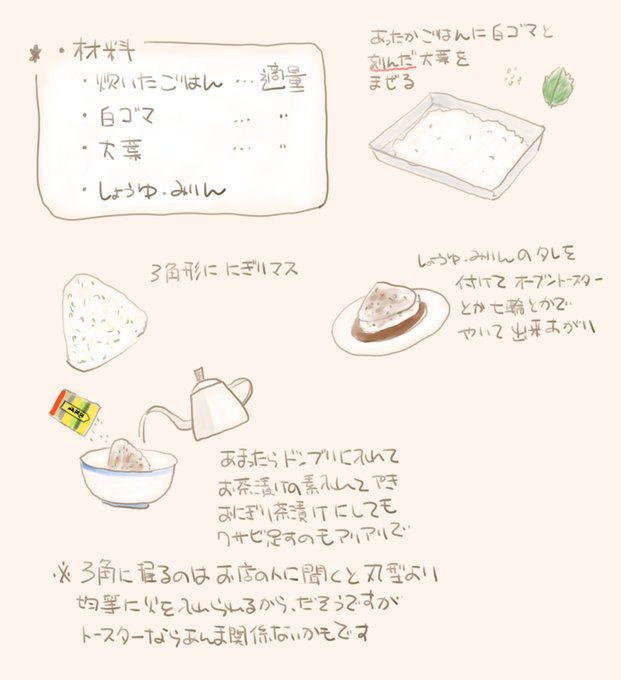 * ・材料
・炊いたごはん … 適量
・白ゴマ … 〃
・大葉 … 〃
・しょうゆ・みりん
あったかごはんに白ゴマと
刻んだ大葉を
まぜる
3角形ににぎりマス
しょうゆ・みりんのタレを
付けてオーブントースター
とか七輪とかで
やいて出来あがり
あまったらドンブリに入れて
お茶漬けの素入れてやき
おにぎり茶漬けにしても
ワサビ足すのもアリアリで
※3角に握るのはお店の人に聞くと丸型より
均等に火を入れられるから、だそうですが
トースターならあんま関係ないかもです